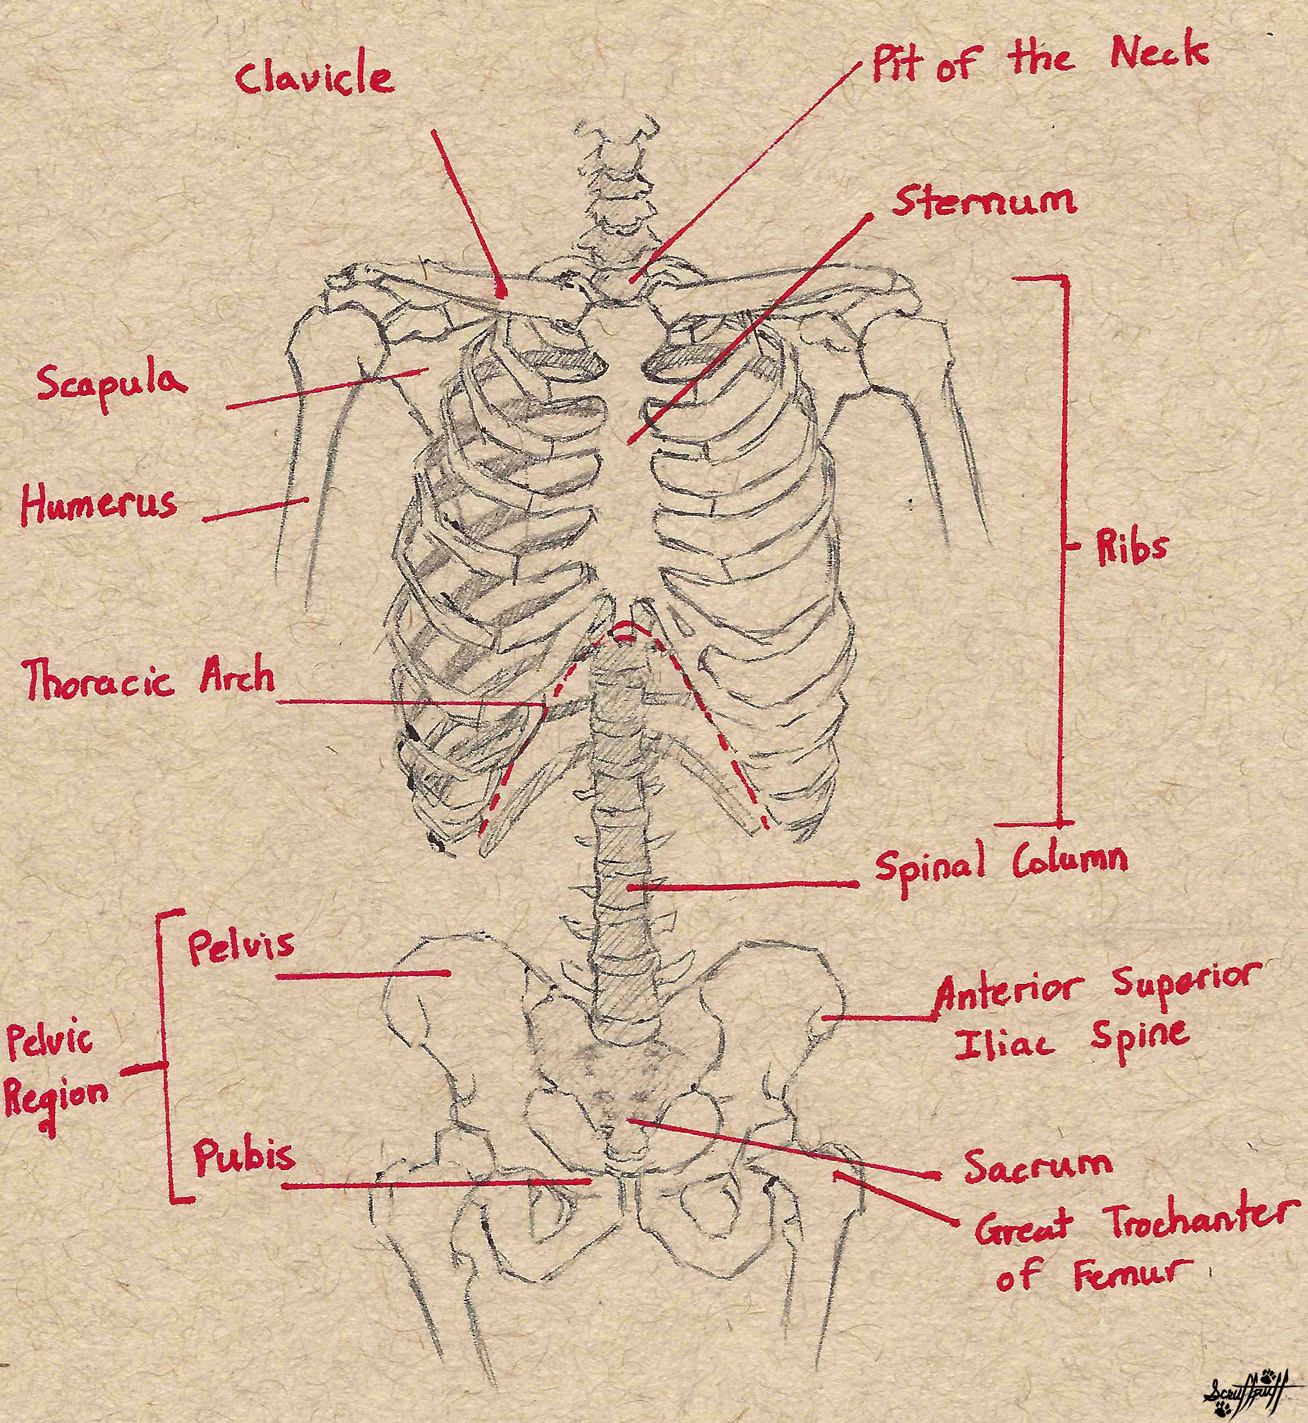 Clavicle
Pit of the Neck
Sternum
Scapula
Humerus
Ribs
Thoracic Arch
Spinal Column
Pelvis
Anterior Superior
Iliac Spine
Pelvic
Region
Pubis
Sacrum
Great Trochanter
of Femur
Scruffpuff